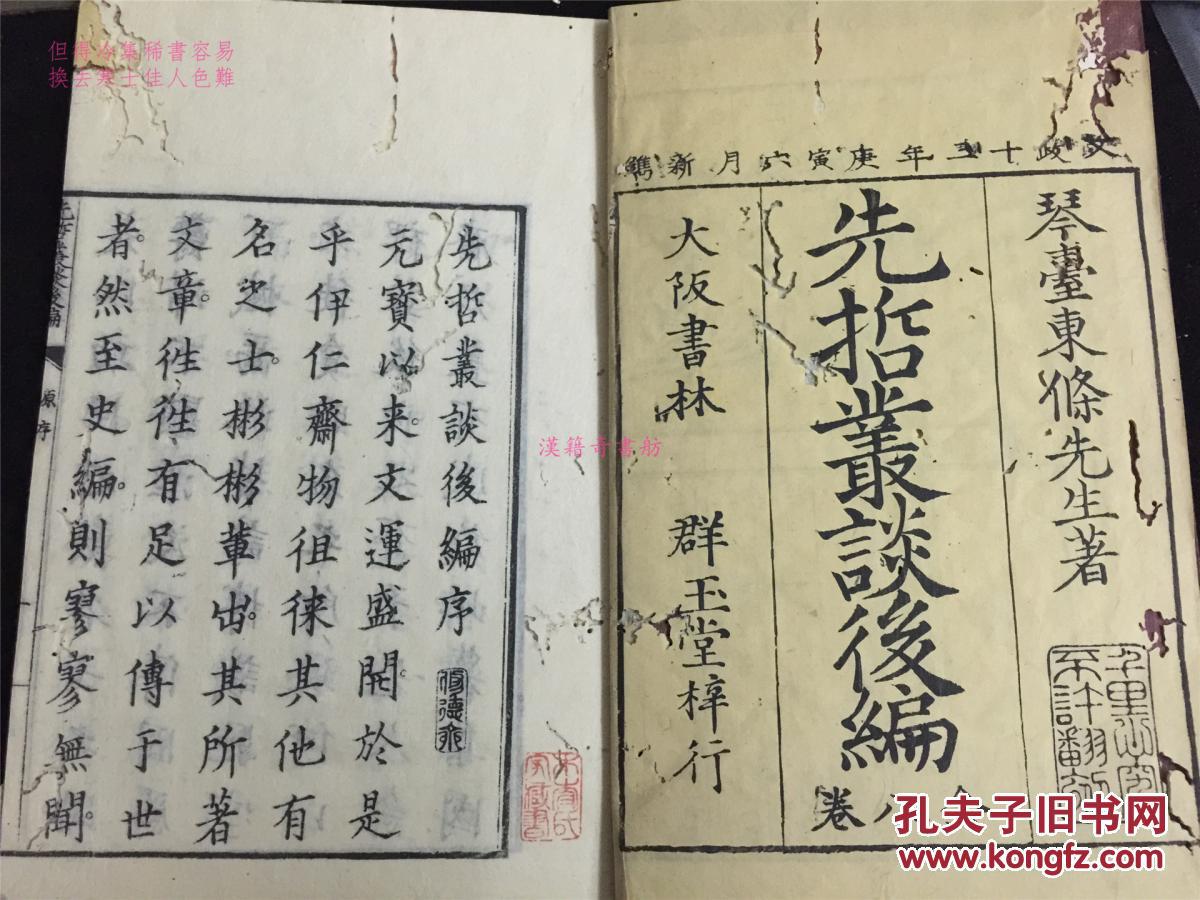 但得冷集稀書容易
換去寒士佳人色難
文政十三年庚寅六月新鐫
琴臺東條先生著
先哲叢談後編
全八卷
大阪書林 群玉堂梓行
千里必究
不許翻刻
先哲叢談後編序
元寶以来。文運盛開。於是
乎伊仁齋物徂徠其他有
名之士。彬彬輩出。其所著
文章。徃徃有足以傳于世
者。然至史編。則寥寥無聞。
原序
漢籍奇書舫
孔夫子旧书网
www.kongfz.com